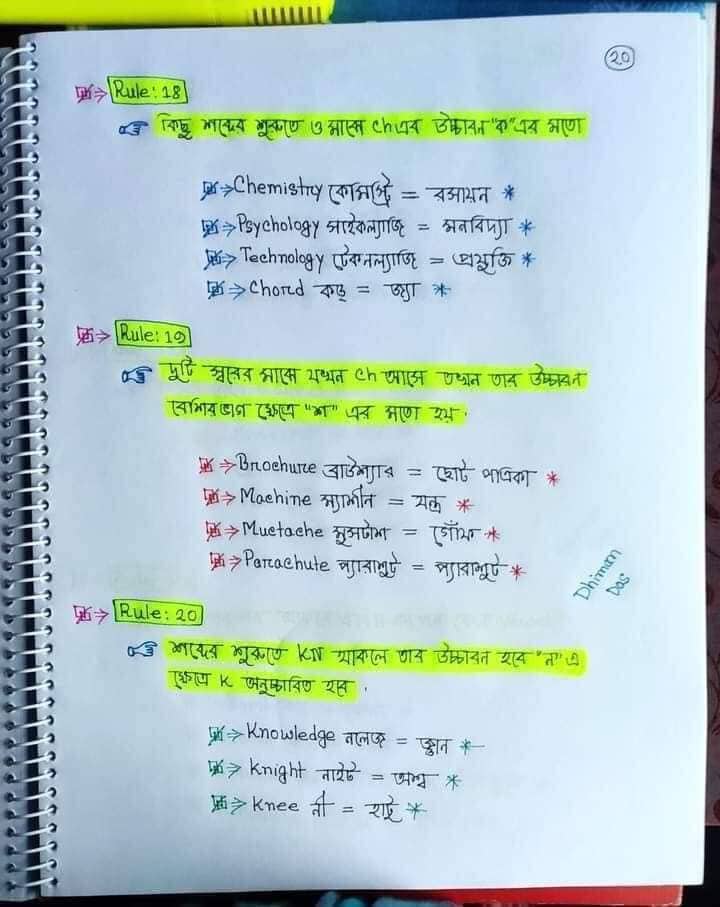 20
Rule: 18
কিছু শব্দের শুরুতে ও মাঝে ch এর উচ্চারন "ক" এর মতো
Chemistry কেমিস্ট্রি = রসায়ন *
Psychology সাইকল্যাজি = মনবিদ্যা *
Technology টেকনল্যাজি = প্রযুক্তি *
Chord কড্ = জ্যা *
Rule: 19
দুটি স্বরের মাঝে যখন ch আসে তখন তার উচ্চারন
বেশিরভাগ ক্ষেত্রে "শ" এর মতো হয়.
Brochure ব্রাউশ্যার = ছোট পত্রিকা *
Machine ম্যাশীন = যন্ত্র *
Muctache মুসটাশ = গোঁফ *
Parachute প্যারাশুট = প্যারাশুট *
Dhiman
Das
Rule: 20
শব্দের শুরুতে KN থাকলে তার উচ্চারন হবে "ন" এ
ক্ষেত্রে K অনুচ্চারিত হবে.
Knowledge নলেজ = জ্ঞান *
Knight নাইট = অশ্ব *
Knee নী = হাটু *